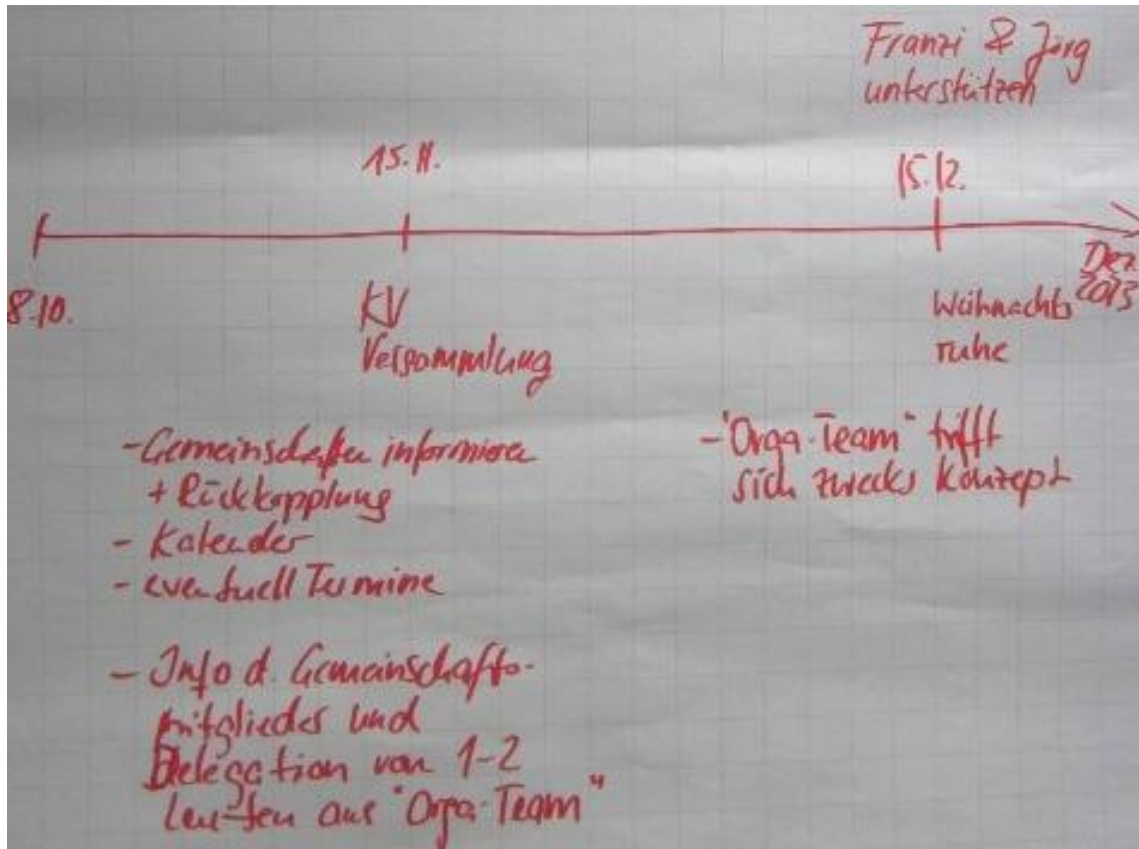 Franzi & Jörg
unterstützen
15.11.
15.12.
8.10.
Dez.
2013
KV
Versammlung
Weihnachts
ruhe
- Gemeinschaften informieren
+ Rückkopplung
- Kalender
- eventuell Termine
- Info d. Gemeinschafts-
mitglieder und
Delegation von 1-2
Leuten aus "Orga-Team"
- "Orga-Team" trifft
sich zwecks Konzept